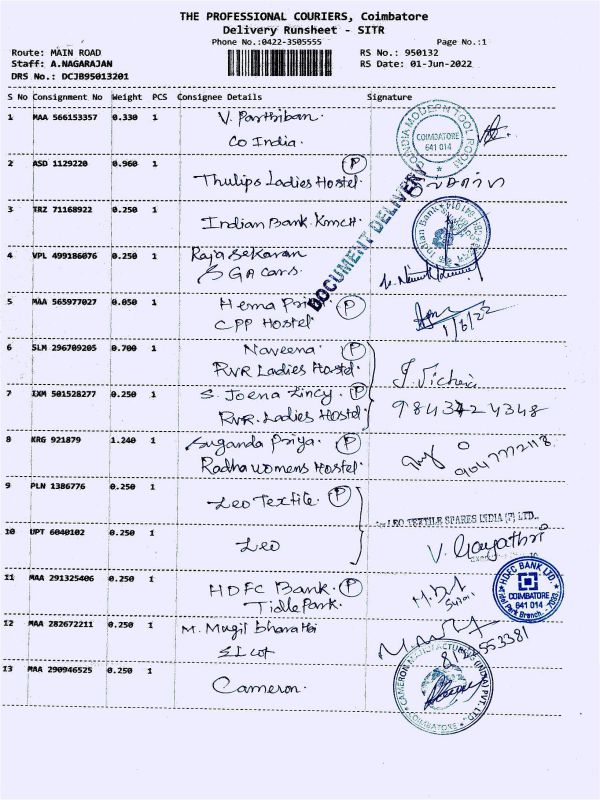 THE PROFESSIONAL COURIERS, Coimbatore
Delivery Runsheet - SITR
Phone No.:0422-3505555
Page No.:1
Route: MAIN ROAD
RS No.: 950132
Staff: A.NAGARAJAN
RS Date: 01-Jun-2022
DRS No.: DCJB95013201
S No Consignment No Weight PCS Consignee Details Signature
1 MAA 566153357 0.330 1 V. Parthiban
Co India.
COINDIA MODERN TOOL ROOM COIMBATORE 641 014
2 ASD 1129220 0.960 1 P
Thulips Ladies Hostel
DOCUMENT DELIVERY
3 TRZ 71168922 0.250 1 Indian Bank. KMCH.
Indian Bank
4 VPL 499186076 0.250 1 Raja Sekaran
GA cars
5 MAA 565977027 0.050 1 Hema Priya P
CPP Hostel
1/6/22
6 SLM 296709205 0.700 1 Naveena. P
RVR Ladies Hostel
7 IXM 501528277 0.250 1 S. Joena Lincy. P
RVR. Ladies Hostel
8 KRG 921879 1.240 1 Suganda Priya. P
Radha womens Hostel
9 PLN 1386776 0.250 1 Leo Textile. P
LEO TEXTILE SPARES INDIA (P) LTD.,
10 UPT 6040102 0.250 1 Leo
V. Gayathri
11 MAA 291325406 0.250 1 HDFC Bank. P
Tidle Park.
HDFC BANK LTD. COIMBATORE 641 014
12 MAA 282672211 0.250 1 M. Mugil bharathi
13 MAA 290946525 0.250 1 Cameron.
CAMERON MANUFACTURING (INDIA) PVT. LTD. COIMBATORE